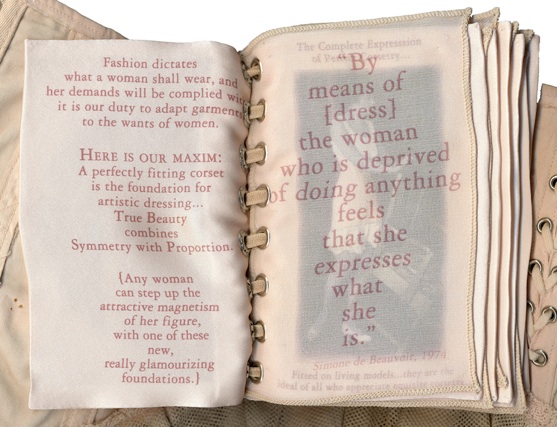 Fashion dictates
what a woman shall wear, and
her demands will be complied with
it is our duty to adapt garments
to the wants of women.
HERE IS OUR MAXIM:
A perfectly fitting corset
is the foundation for
artistic dressing...
True Beauty
combines
Symmetry with Proportion.
{Any woman
can step up the
attractive magnetism
of her figure,
with one of these
new,
really glamourizing
foundations.}
The Complete Expresssion
of
"By
means of
[dress}
the woman
who is deprived
of doing anything
feels
that she
expresses
what
she
is."
Simone de Beauvoir, 1974
Fitted on living models...they are the
ideal of all who appreciate